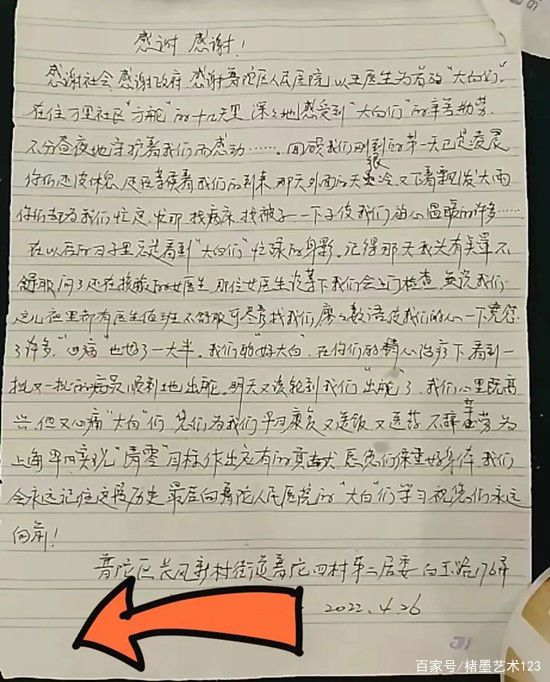 感谢 感谢!
感谢社会 感谢政府 感谢普陀区人民医院 以王医生为首的"大白们"。
在住万里社区"方舱"的十几天里 深深地感受到"大白们"的辛苦勤劳。
不分昼夜地守护着我们而感动……。回顾我们刚到的第一天已是凌晨
你们还没休息 还在等候着我们的到来 那天外面的天很冷 又下着瓢泼大雨
你们都为我们忙这忙那 找病床 找被子 一下子使我们的心温暖的许多……
在以后的日子里总是看到"大白们"忙碌的身影。记得那天我头有点晕不
舒服 问了还在 的女医生 那位女医生说等下我们会上门检查 并说我们
这儿夜里都有医生值班 不舒服可尽管找我们 廖廖数语使我们的心一下宽慰
了许多,"心病"也好了一大半。我们的"好大白"在你们的精心治疗下 看到一
批又一批的病员顺利地出舱。明天又该轮到我们"出舱"了。我们心里既高
兴 但又心痛"大白"们 您们为我们早日康复 又送饭 又送药 不辞辛劳 为
上海早日实现"清零"目标作出应有的贡献。愿您们保重好身体 我们
会永远记住这段历史 最后向普陀人民医院的"大白"们学习 祝您们永远
向前!
普陀区长风新村街道普陀四村第二居委 白玉路176弄
2022.4.26
百家号/楮墨艺术123